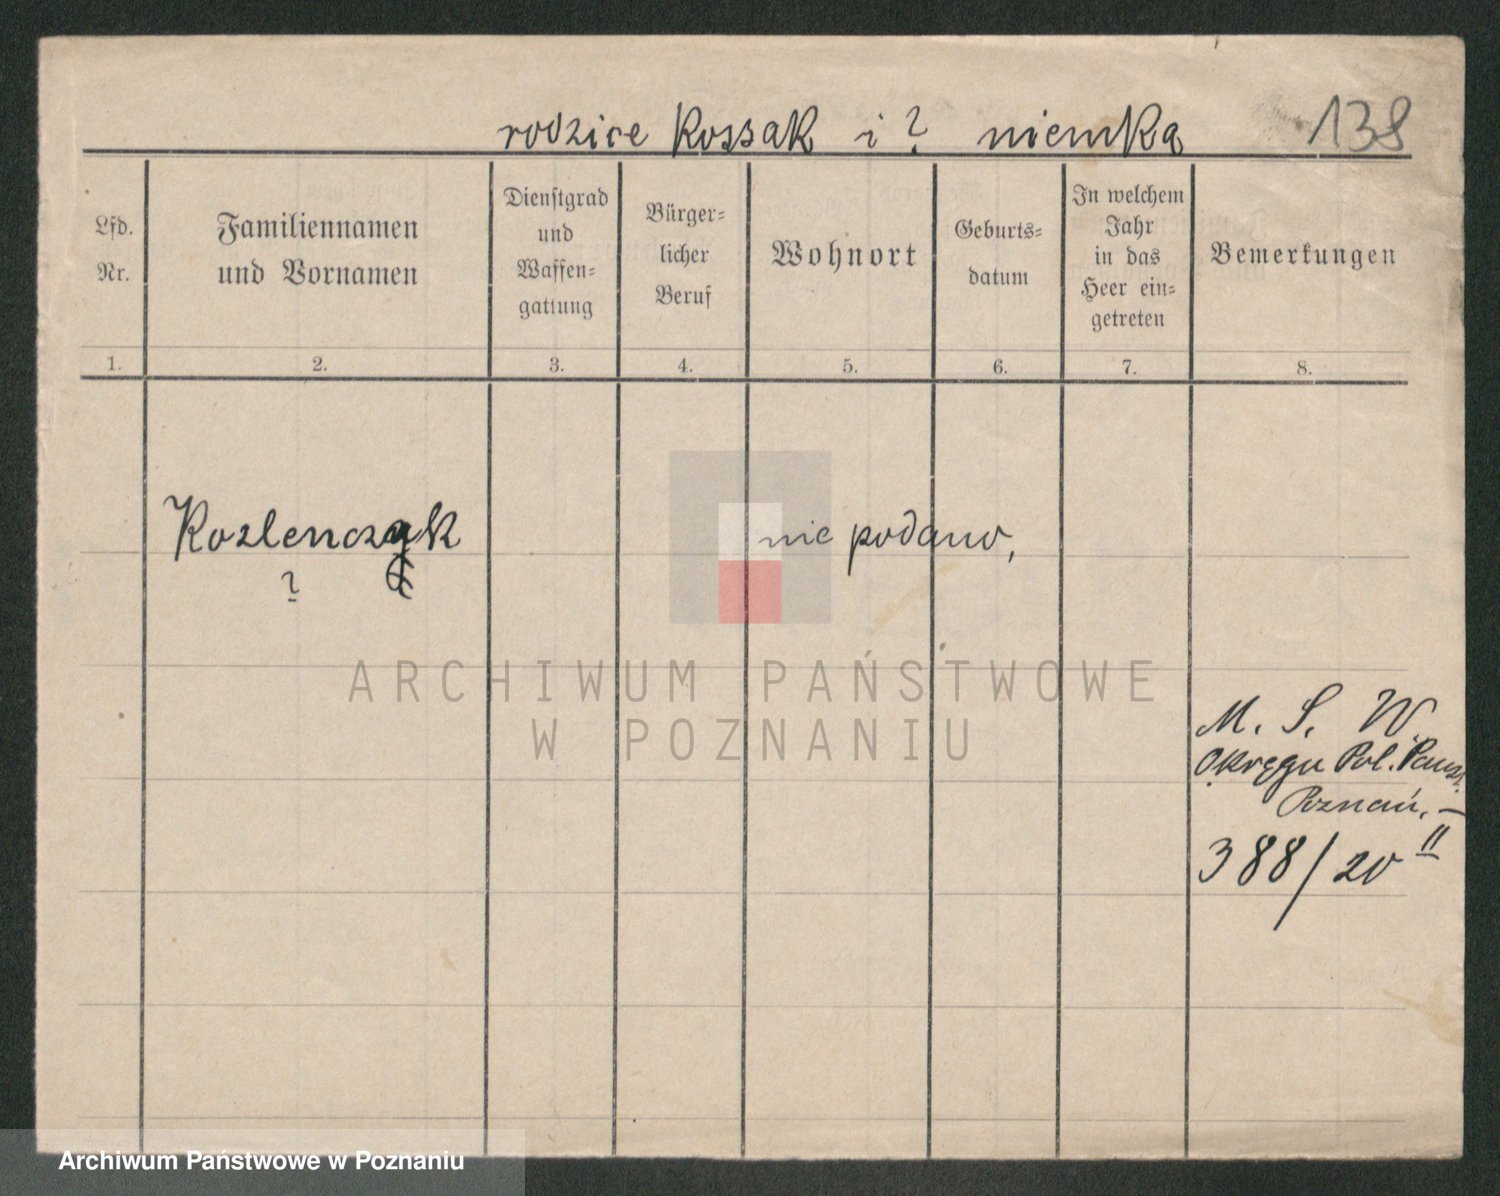 rodzice Kossak i ? niemką 138
Lfd.
Nr.
Familiennamen
und Vornamen
Dienstgrad
und
Waffen-
gattung
Bürger-
licher
Beruf
Wohnort
Geburts-
datum
In welchem
Jahr
in das
Heer ein-
getreten
Bemerkungen
1. 2. 3. 4. 5. 6. 7. 8.
Kozlenczyk nie podano,
?
ARCHIWUM PAŃSTWOWE
W POZNANIU
M. S. W.
Okręgu Pol. Państ.
Poznań. –
388/20 II
Archiwum Państwowe w Poznaniu